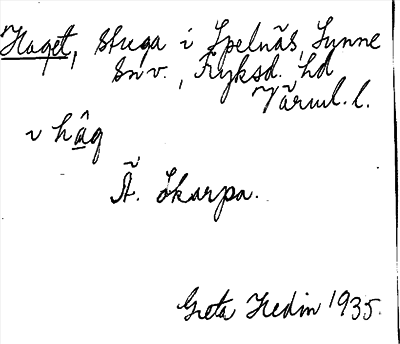 Haget, stuga i Spelnäs, Lysne
sn v., Fryksd. hd
Värml. l.
v hâg
Ä. skarpa.
Greta Hedin 1935.